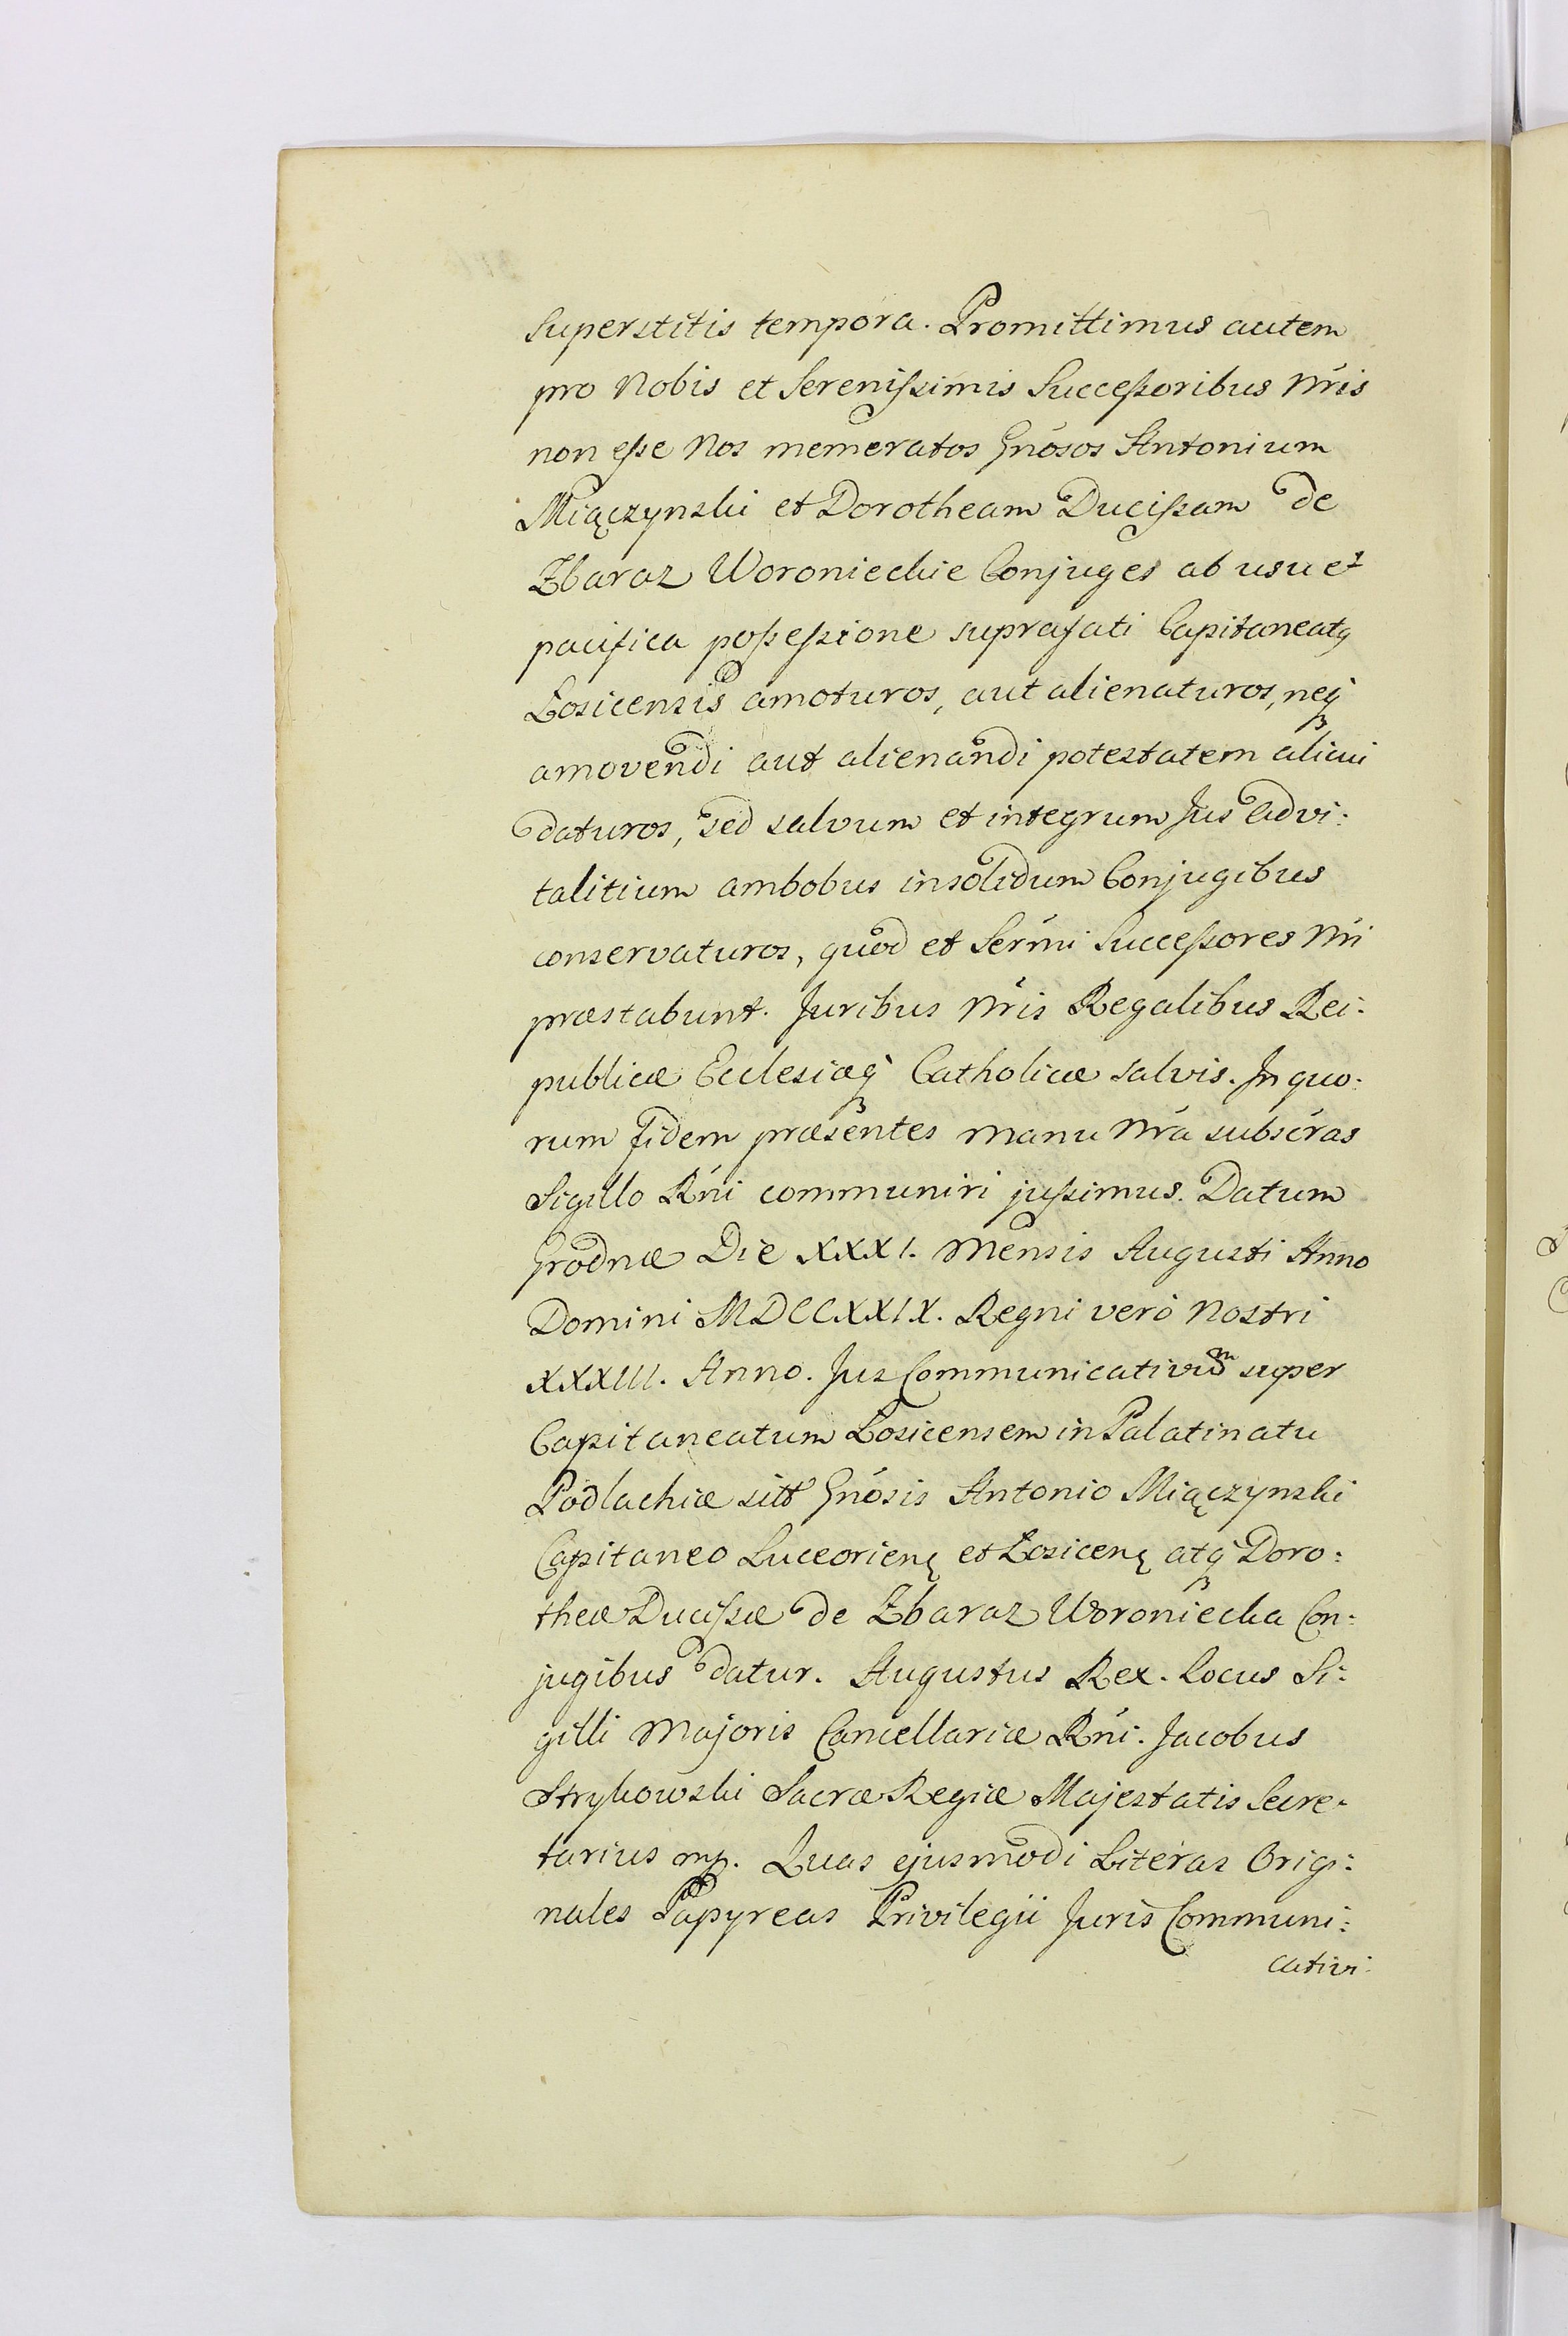 superstitis tempora. Promittimus autem
pro Nobis et Sereniſsimis Succeſsoribus Nr̃is
non eſse Nos memeratos Gnõsos Antonium
Miączynski et Dorotheam Duciſsam de
Zbaraz Woronieckie Conjuges ab usu et
pacifica poſseſsione suprafati Capitaneatꝰ
Łosicensis amoturos, aut alienaturos, neqꝫ
amovendi aut alienandi potestatem alicui
daturos, sed salvum et integrum Jus advi:
talitium ambobus insolidum Conjugibus
conservaturos, quod et Serm̃i Succeſsores Nr̃i
præstabunt. Juribus Nr̃is Regalibus Rei:
publicæ Ecclesiæqꝫ Catholicæ salvis. In quo:
rum fidem præsentes manu Nr̃a subscr̃as
Sigillo Rñi communiri juſsimus. Datum
Grodnæ Die XXXI. Mensis Augusti Anno
Domini MDCCXXIX. Regni verò Nostri
XXXIII. Anno. Jus Communicativum super
Capitaneatum Łosicensem in Palatinatu
Podlachiæ sitt Gnõsis Antonio Miączynski
Capitaneo Luceorienę et Łosicenę atqꝫ Doro:
theæ Duciſsæ de Zbaraz Woroniecka Con:
jugibus datur. Augustus Rex. Locus Si:
gilli Majoris Cancellariæ Rñi. Jacobus
Strykowski Sacræ Regiæ Majestatis Secre:
tarius mp. Quas ejusmodi Literas Origi:
nales Papyreas Privilegii Juris Communi:
cativi